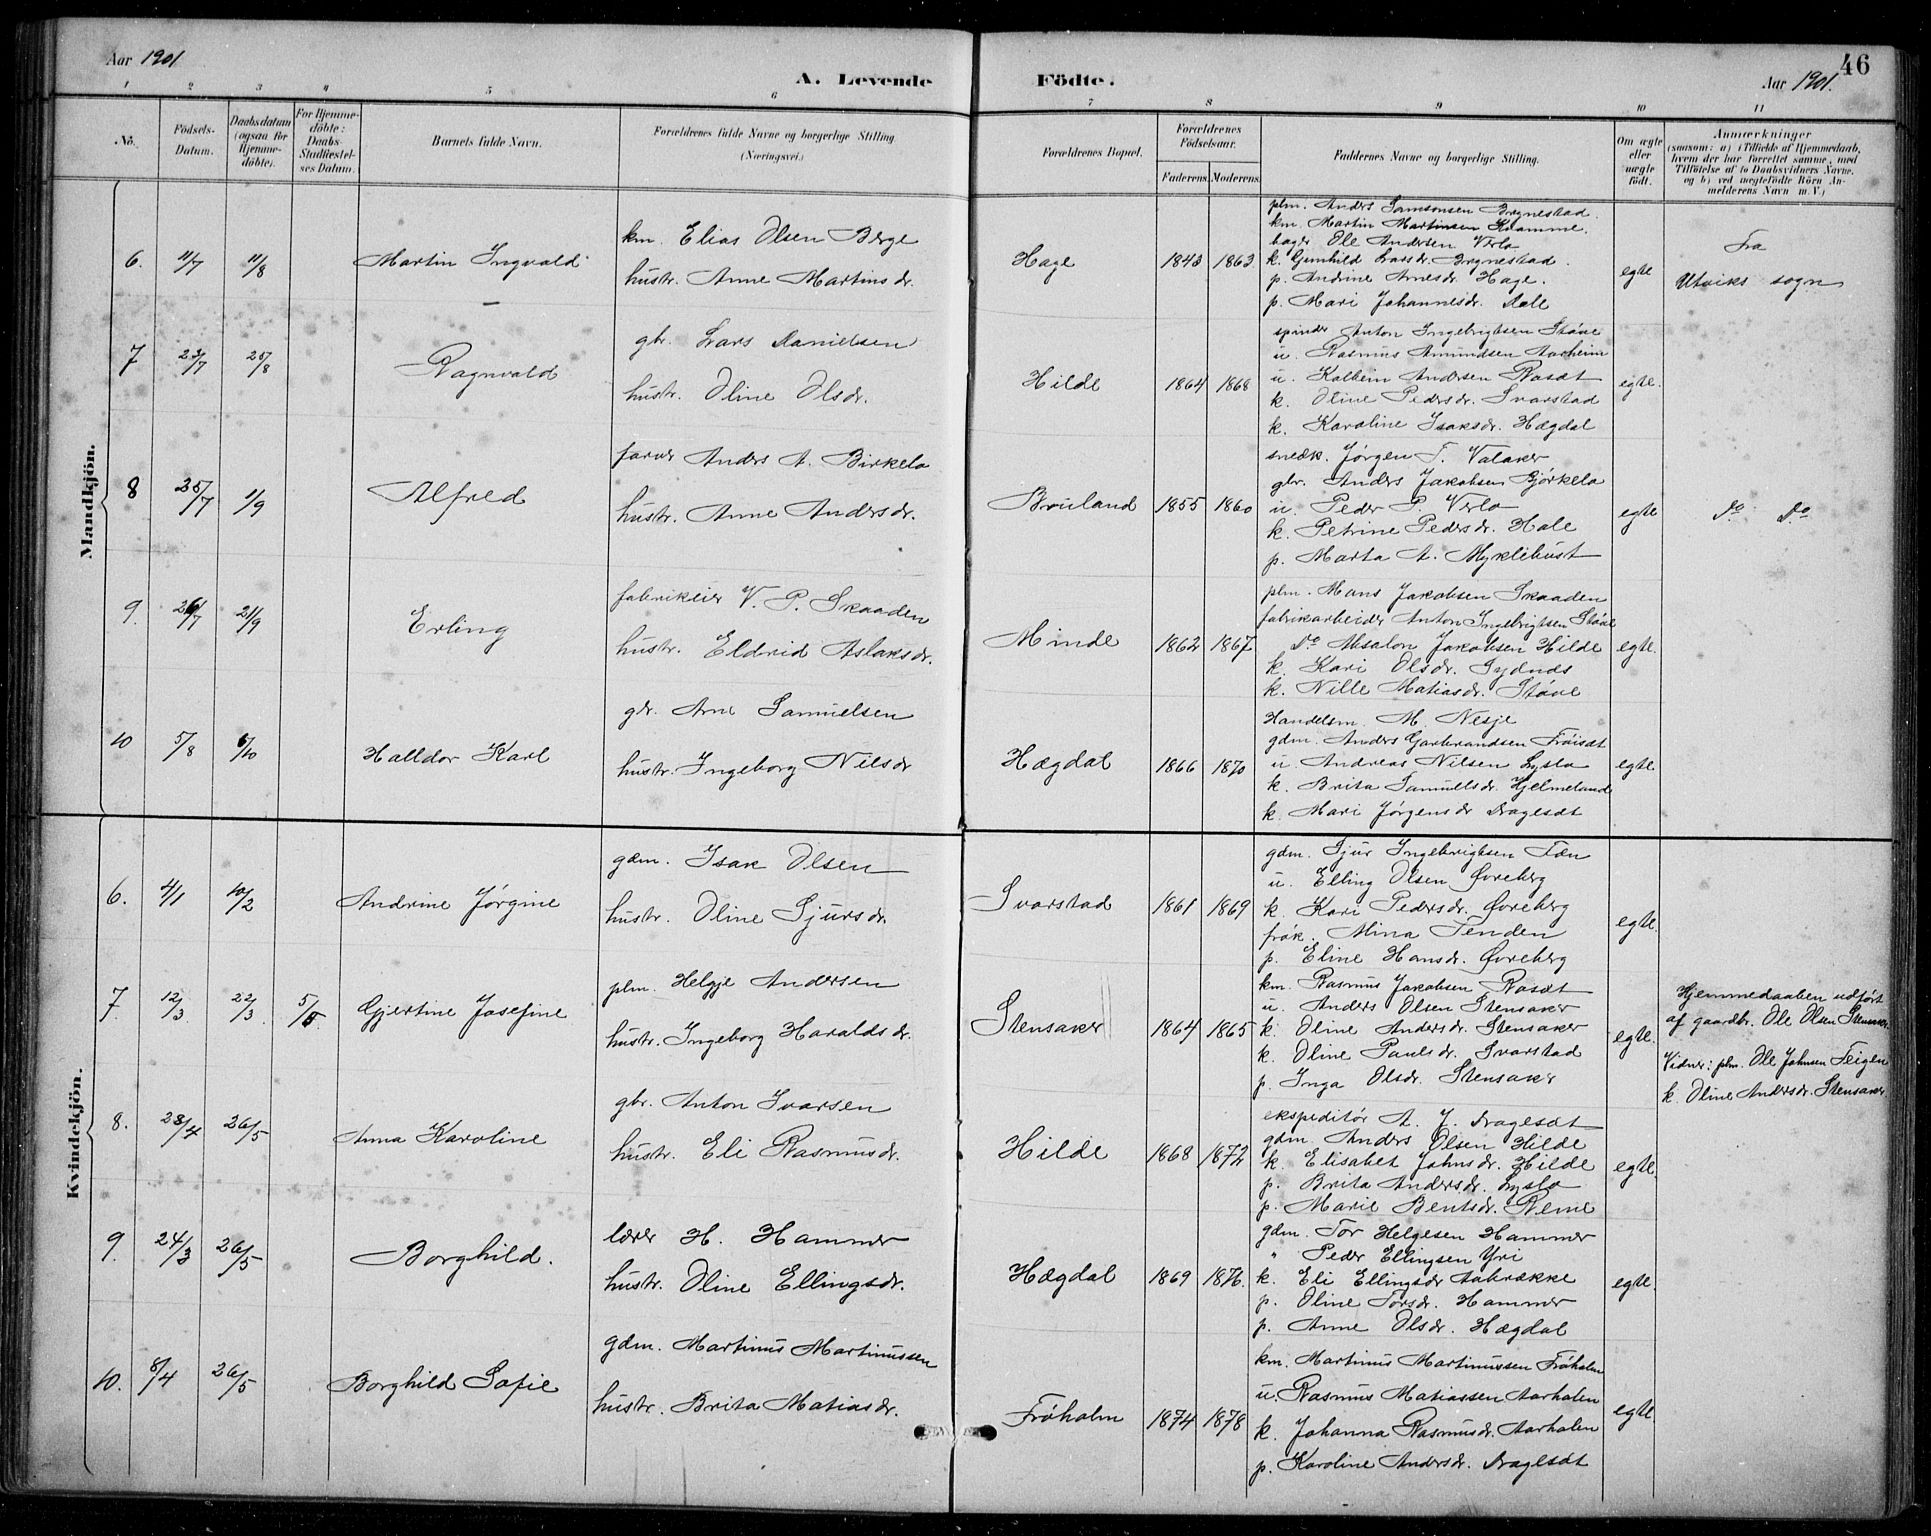 Aar 1901
A. Levende
Födte.
Aar 1901.
46
1 2 3 4 5 6 7 8 9 10 11
No.
Födsels-Datum.
Daabsdatum (ogsaa for Hjemmedöbte).
For Hjemmedöbte: Daabs-Stadfæstelses Datum.
Barnets fulde Navn.
Forældrenes fulde Navne og borgerlige Stilling (Næringsvei.)
Forældrenes Bopæl.
Forældrenes Födselsaar.
Faderens. Moderens.
Faddernes Navne og borgerlige Stilling.
Om ægte eller uægte födt.
Anmærkninger
(saasom: a) i Tilfælde af Hjemmedaab,
hvem der har forrettet samme, med
Tilföielse af to Daabsvidners Navne,
og b) ved uægtefödte Börn Anmelderens Navn m. V.)
Mandkjön.
6. 11/7 11/8 Martin Ingvald
km. Elias Olsen Berge
hustr. Anne Martinsdr.
Hage 1843 1863
plm. Anders Samsonsen Brynestad.
km. Martin Martinsen Kvamme.
bager Ole Andersen Verlo
k. Gunhild Larsdr. Brynestad.
p. Andrine Arnesdr. Hage.
p. Mari Johannesdr. Aale
egte
Fra
Utviks sogn
7 23/7 25/8 Ragnvald
gbr. Lars Danielsen
hustr. Oline Olsdr.
Hilde 1864 1868
spinder Anton Ingebrigtsen Støve
u. Rasmus Amundsen Aarheim
u. Kolbein Andersen Rosæt
k. Oline Pedersdr. Svarstad
k. Karoline Isaksdr. Hægdal
egte.
8 25/7 1/9 Alfred
farver Anders A. Birkelo
hustr. Anne Andersdr.
Bruland 1855 1860
snedk. Jørgen T. Valaker
gbr. Anders Jakobsen Bjørkelo
u. Peder P. Verlo
k. Petrine Pedersdr. Hole
p. Marta A. Myklebust
egte
Do Do
9. 26/7 21/9 Erling
fabrikeier V. P. Skaaden
hustr. Eldrid Aslaksdr.
Minde 1862 1867
plm. Mons Jakobsen Skaaden
fabrikarbeider Anton Ingebrigtsen Støve
Do Absalon Jakobsen Hilde
k. Kari Olsdr. Sydnes
k. Nille Matiasdr. Støve
egte.
10 5/8 6/10 Halldor Karl
gbr. Arne Samuelsen
hustr. Ingeborg Nilsdr
Hægdal 1866 1870
Handelsm. M. Nesje
gdm. Anders Garbrandsen Frøisæt
u. Andreas Nilsen Lyslo
k. Brita Samuelsdr. Hjelmeland
k. Mari Jørgensdr Dragesæt
egte
Kvindekjön.
6. 4/1 10/2 Andrine Jørgine
gdm. Isak Olsen
hustr. Oline Sjursdr.
Svarstad 1861 1869
gdm. Sjur Ingebrigtsen Tæn
u. Elling Olsen Øvreberg
k. Kari Pedersdr. Øvreberg
frøk. Mina Tenden
p. Eline Hansdr. Øvreberg
egte.
7. 12/3 22/3. 5/5 Gjertine Josefine
plm. Helgje Andersen
hustr. Ingeborg Haraldsdr.
Stensaker 1864 1865
km. Rasmus Jakobsen Rosæt
u. Anders Olsen Stensaker
k. Oline Andersdr. Stensaker
k. Oline Paulsdr. Svarstad
p. Inga Olsdr. Stensaker
egte.
Hjemmedaaben udført
af gaardbr. Ole Olsen Stensaker.
Vidner: plm. Ole Johnsen Feigen
k. Oline Andersdr. Stensaker.
8. 28/4 26/5 Anna Karoline
gbr. Anton Ivarsen
hustr. Eli Rasmusdr.
Hilde 1868 1872
ekspeditør A. J. Dragesæt
gdm. Anders Olsen Hilde
k. Elisabet Johnsdr. Hilde
p. Brita Andersdr. Lyslo
p. Marie Bentsdr. Reme
egte.
9. 24/3 26/5 Borghild.
lærer H. Hammer
hustr. Oline Ellingsdr.
Hægdal 1869 1876.
gdm. Tor Helgesen Hammer
" Peder Ellingsen Yri
k. Eli Ellingsdr Aabrække
p. Oline Torsdr. Hammer
p. Anne Olsdr. Hægdal
egte.
10. 8/4 26/5 Borghild Sofie
gdm. Martinus Martinussen
hustr. Brita Matiasdr.
Frøholm 1874 1878
km. Martinus Martinussen Frøholm
u. Rasmus Matiassen Aarholen
k. Johanna Rasmusdr. Aarholen
p. Karoline Andersdr. Dragesæt
egte